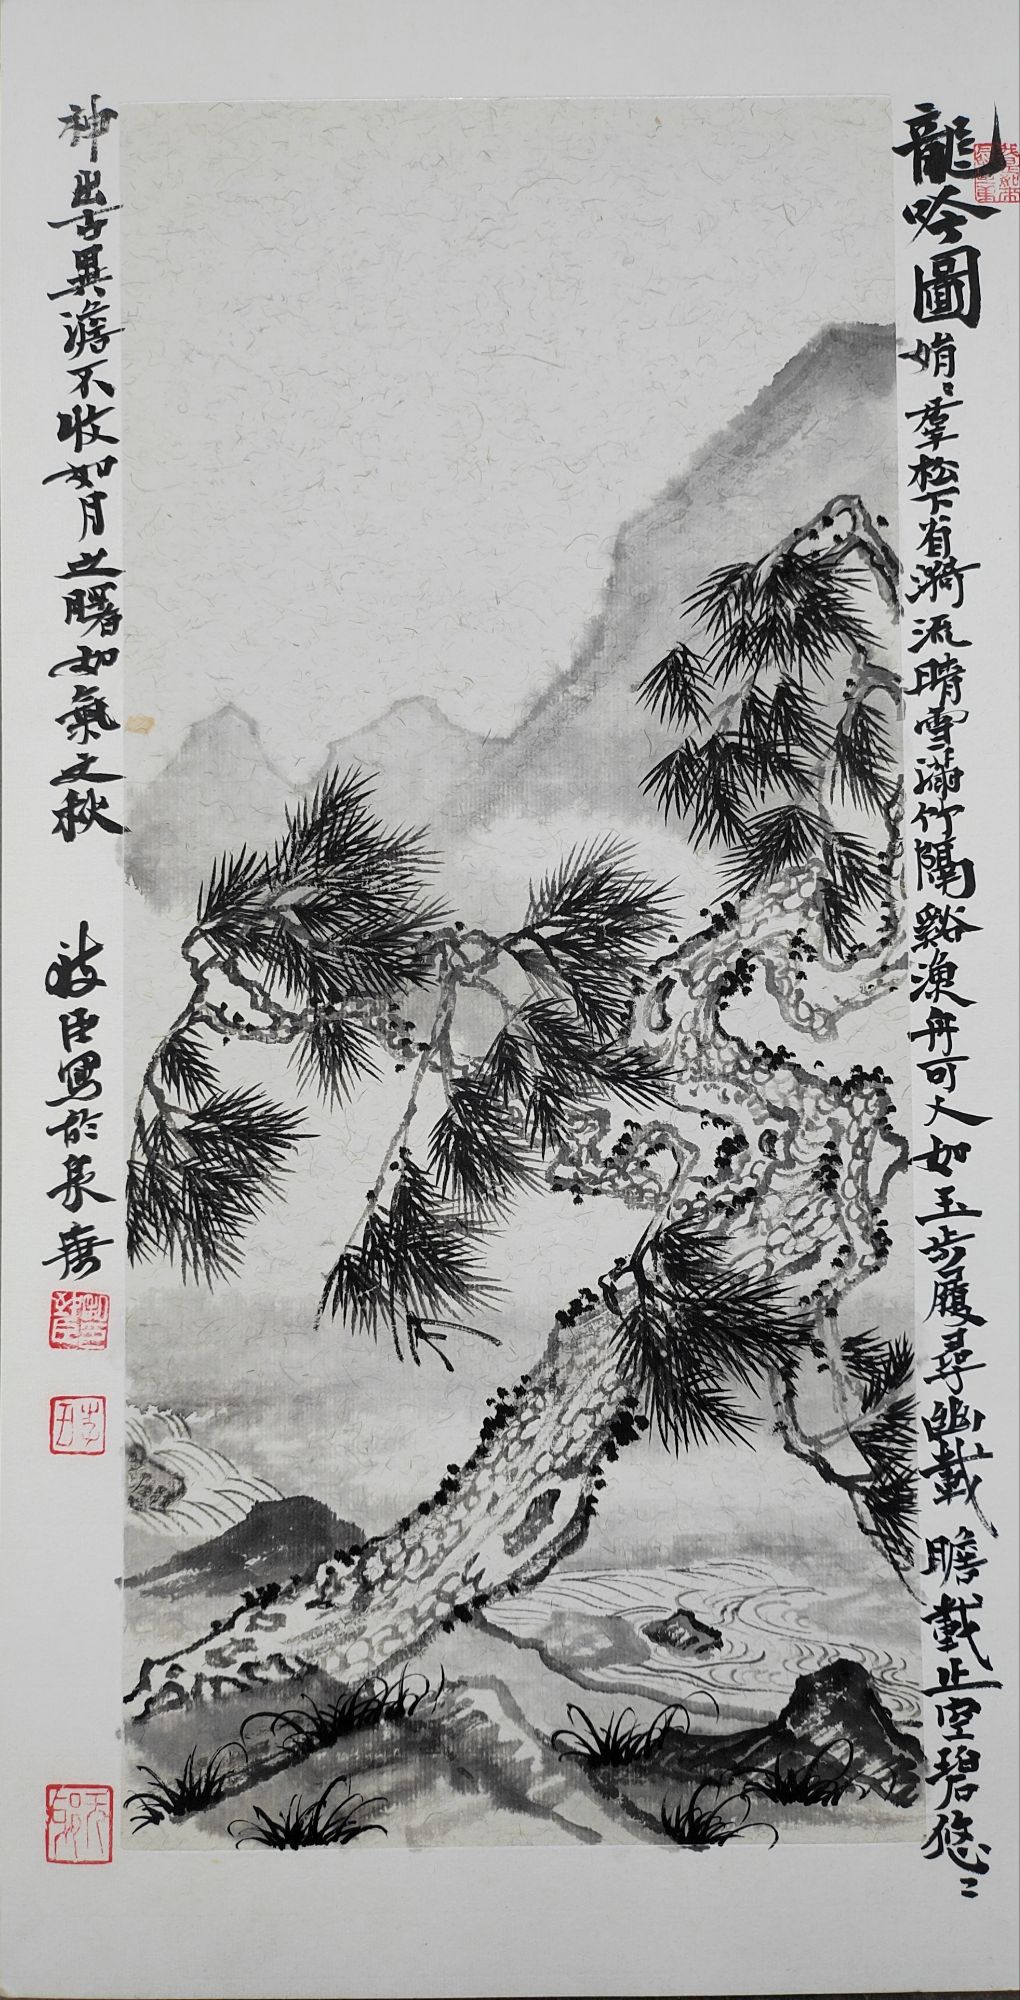 龍吟圖 娟〻羣松下有漪流晴雪滿竹隔谿漁舟可人如玉步屧尋幽載瞻載止空碧悠〻
神出古異澹不收如月之曙如氣之秋
臣寫於泉